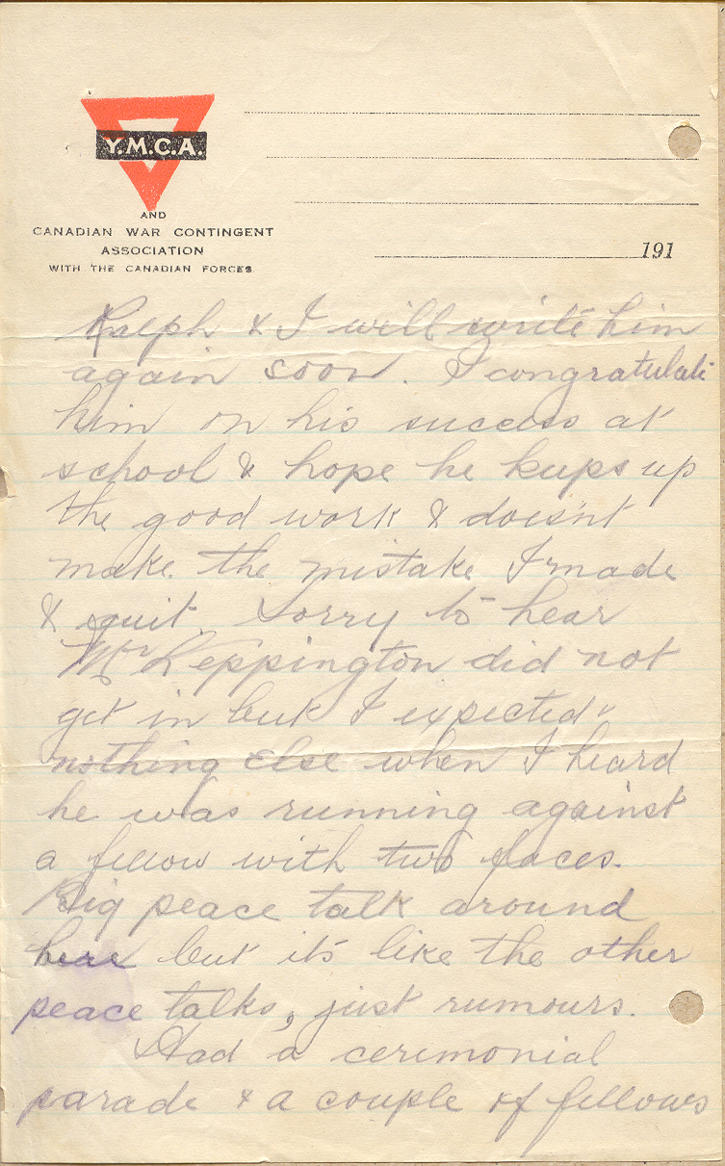 Y.M.C.A.
AND
CANADIAN WAR CONTINGENT
ASSOCIATION
WITH THE CANADIAN FORCES.
191
Ralph & I will write him
again soon. I congratulate
him on his success at
school & hope he keeps up
the good work & doesn't
make the mistake I made
& quit. Sorry to hear
Mr Leppington did not
get in but I expected
nothing else when I heard
he was running against
a fellow with two faces.
Big peace talk around
here but its like the other
peace talks, just rumours.
Had a ceremonial
parade & a couple of fellows